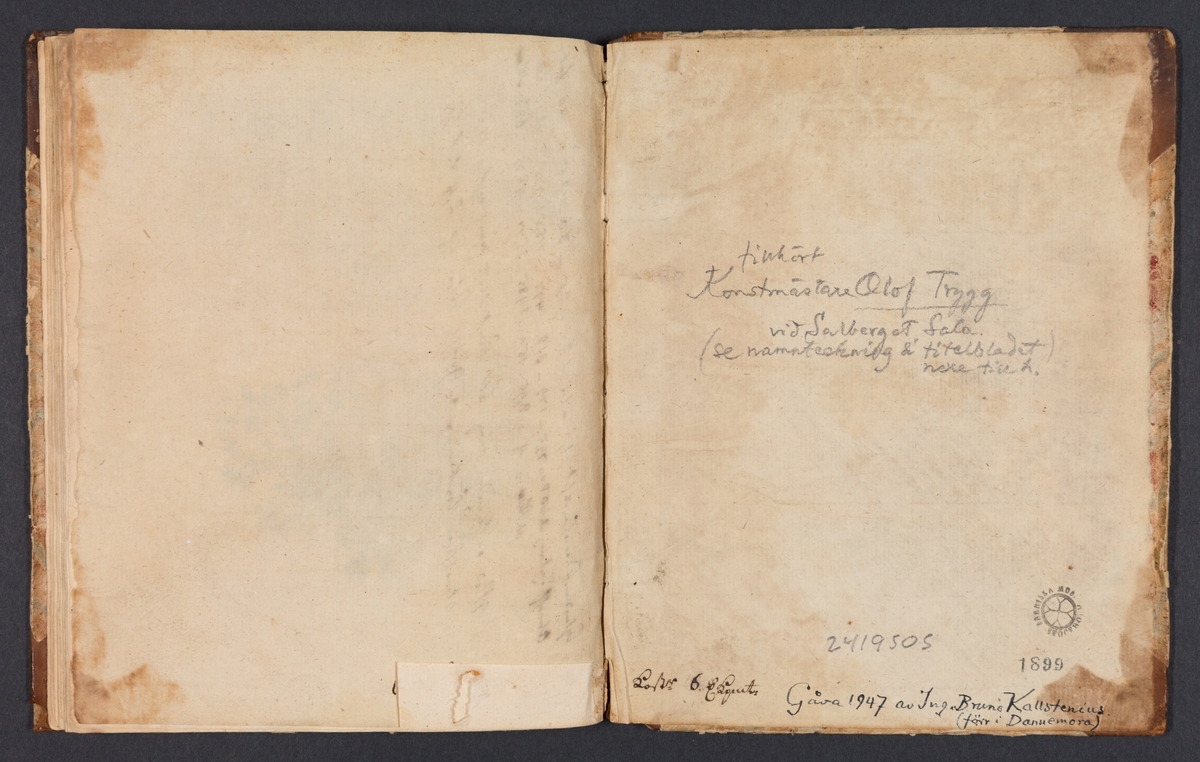 tillhört
Konstmästare Olof Trygg
vid Salberget Sala.
(se namnteckning å titelbladet)
nere till h.
2419505
1899
6
Gåva 1947 av Ing. Bruno Kallstenius
(förr i Dannemora)